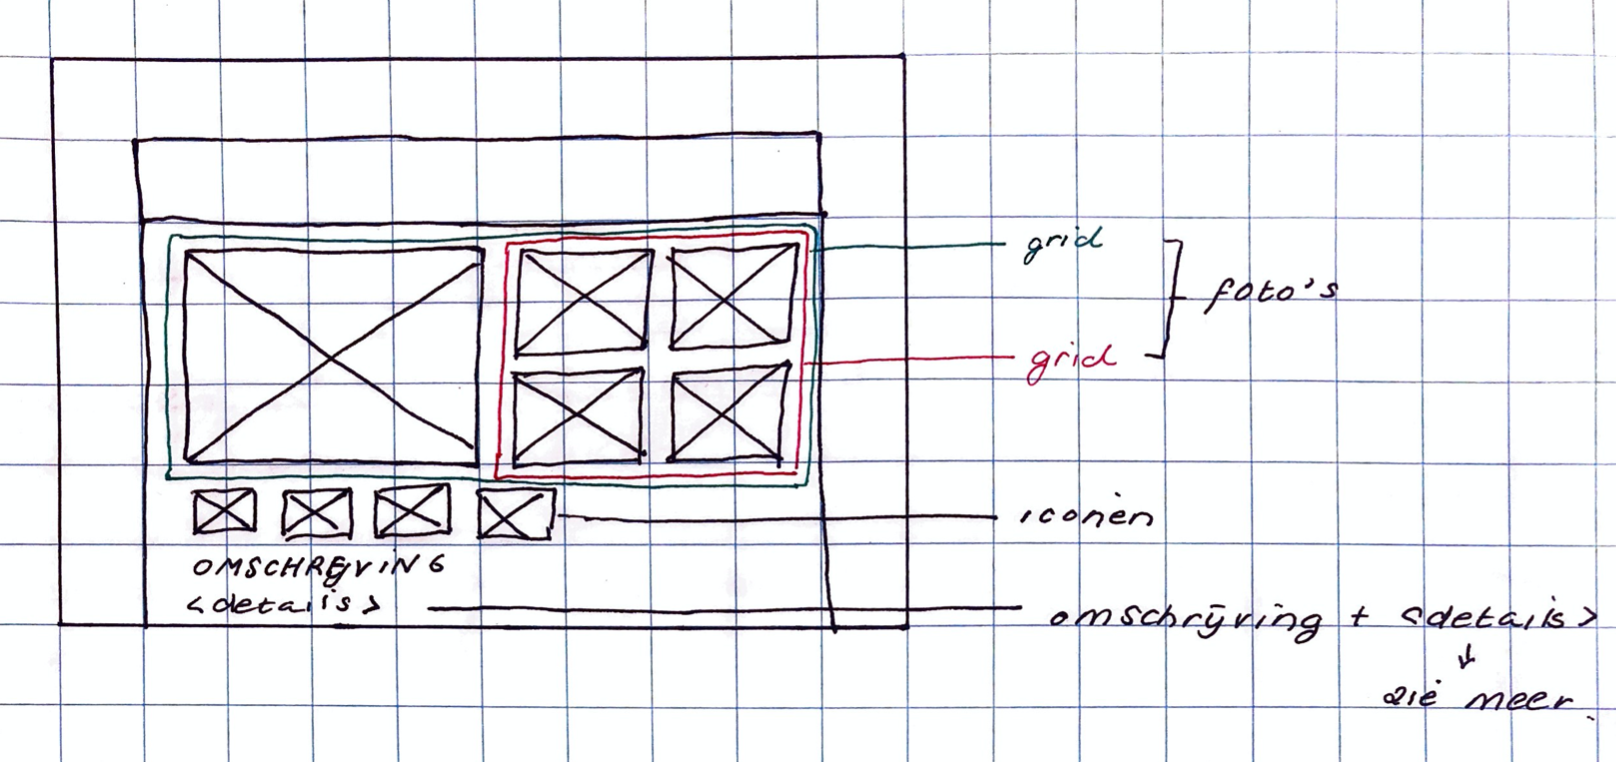 grid
foto's
grid
iconen
OMSCHRIJVING
<details>
omschrijving + <details>
↓
zie meer.